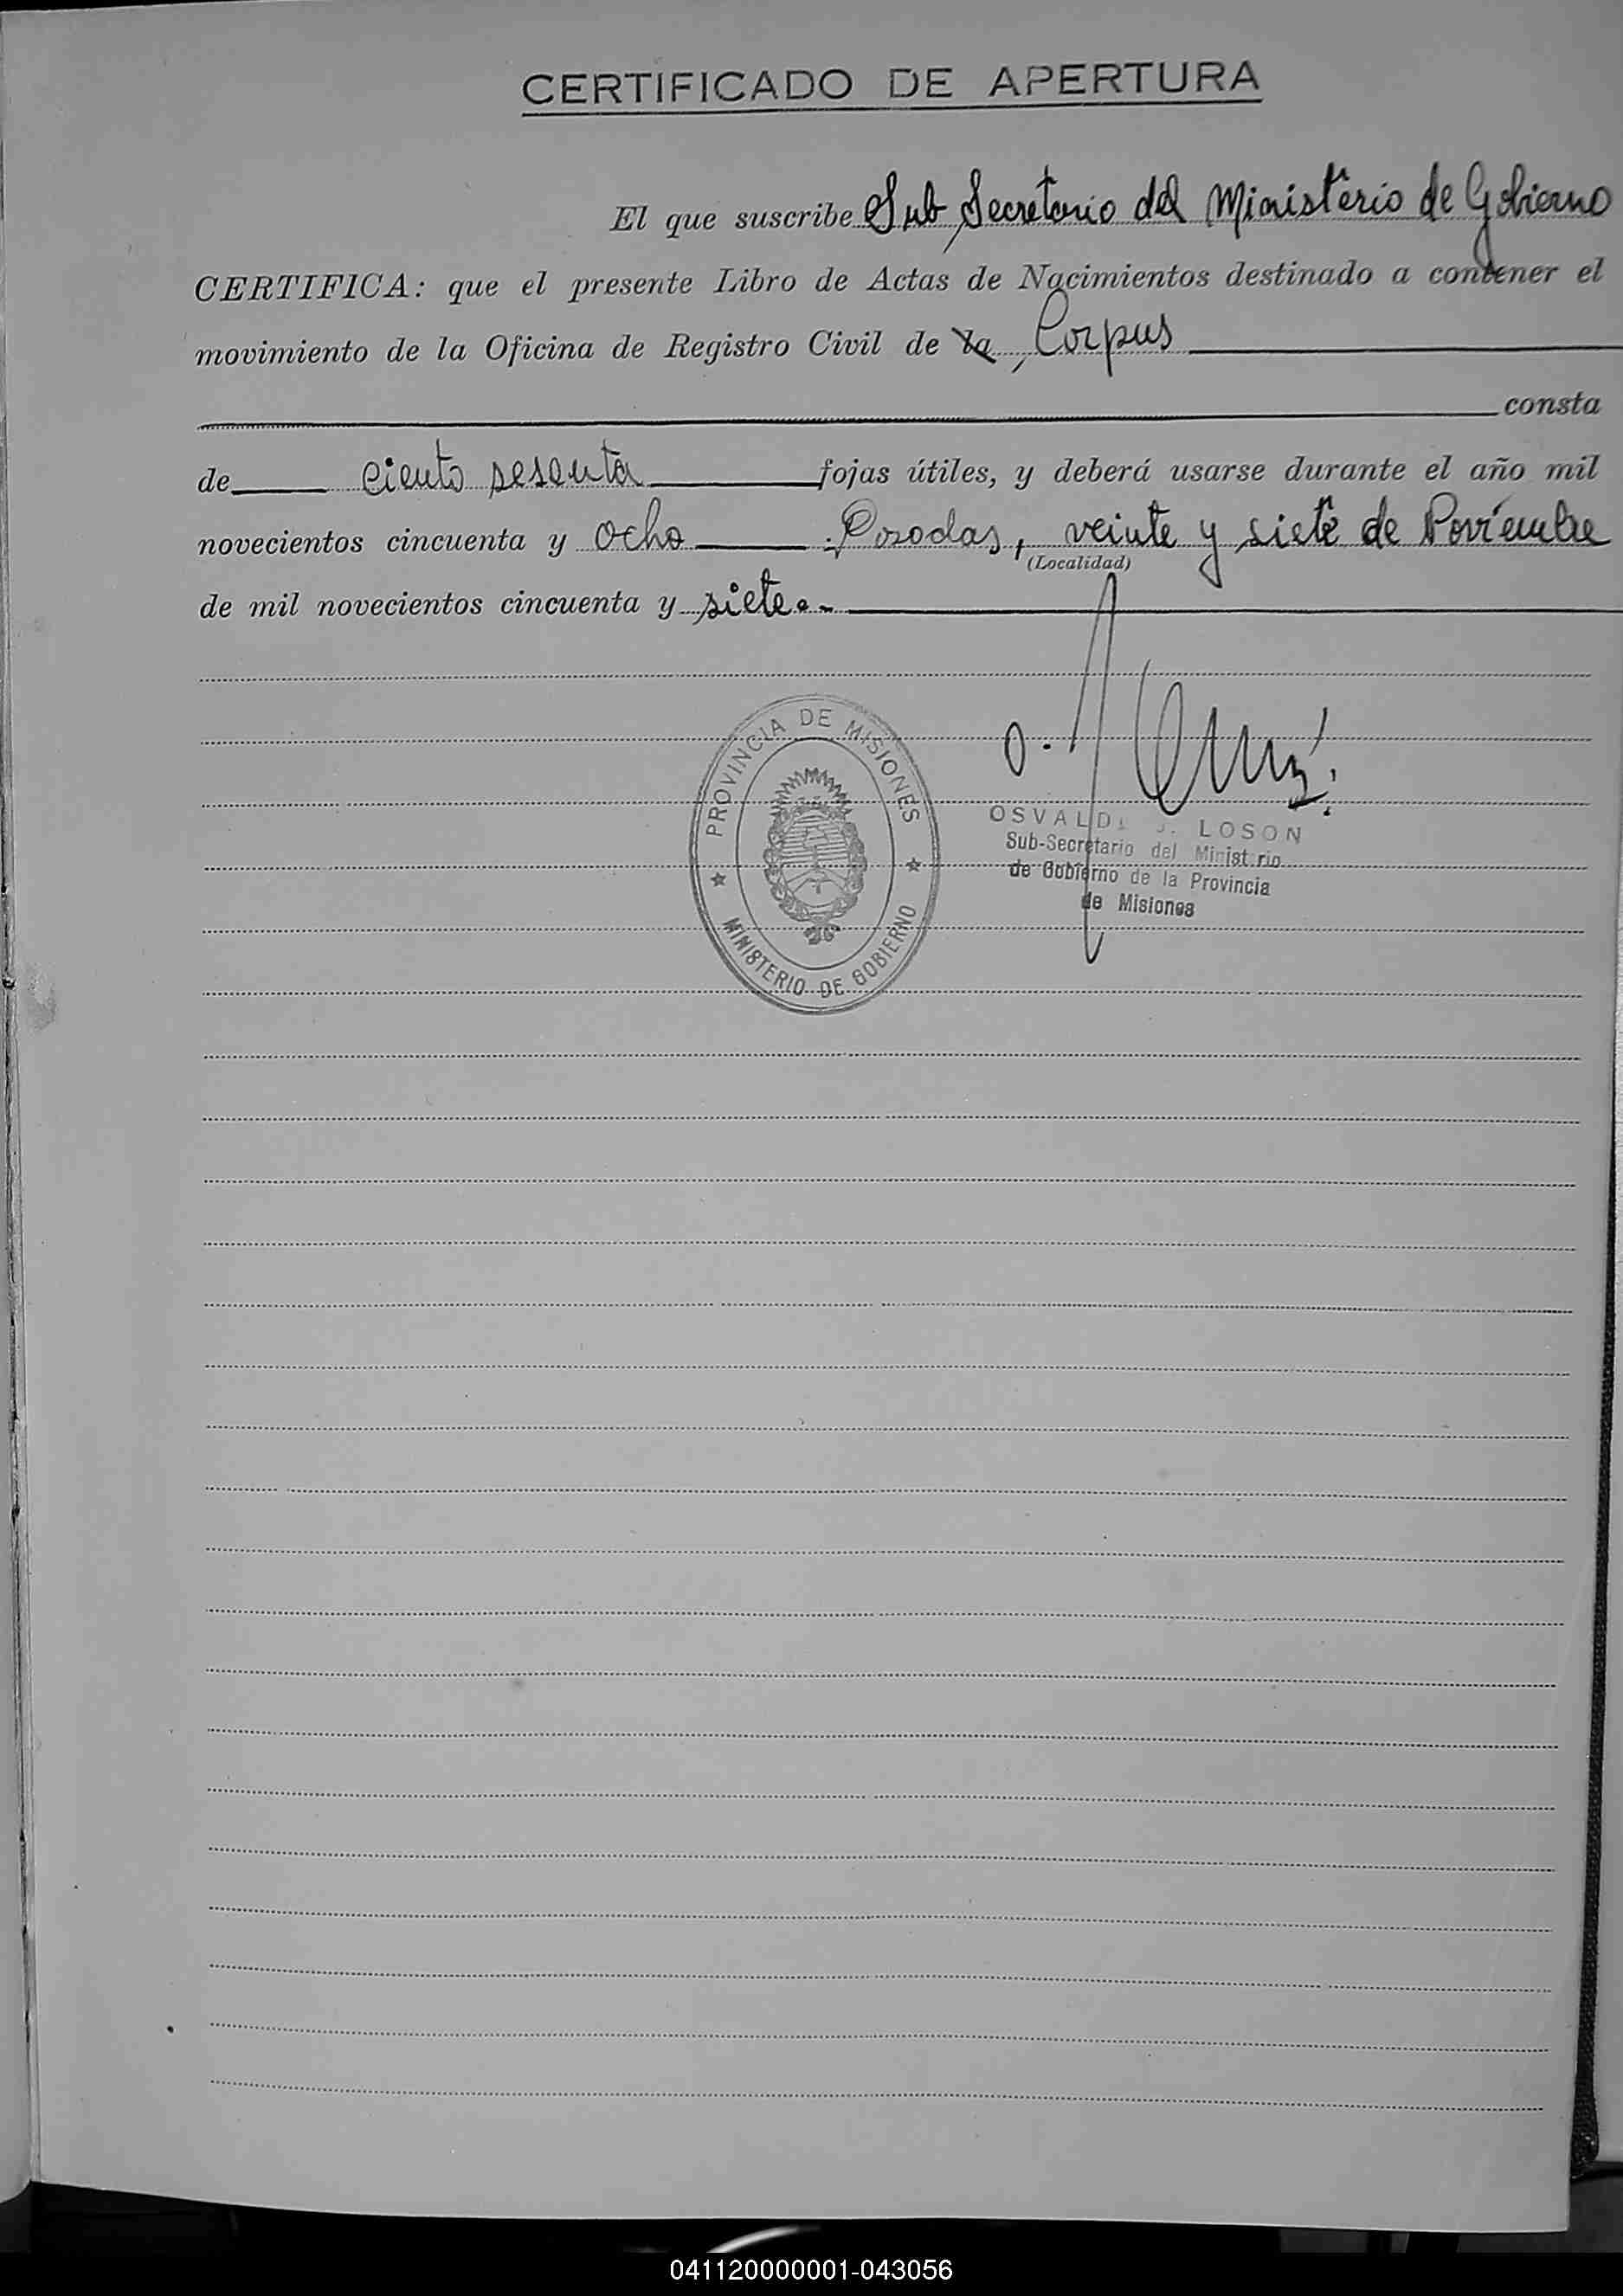 CERTIFICADO DE APERTURA
El que suscribe Sub Secretario del Ministerio de Gobierno
CERTIFICA: que el presente Libro de Actas de Nacimientos destinado a contener el
movimiento de la Oficina de Registro Civil de la Corpus
consta
de ciento sesenta fojas útiles, y deberá usarse durante el año mil
novecientos cincuenta y ocho Posadas, veinte y siete de Noviembre
(Localidad)
de mil novecientos cincuenta y siete.-
PROVINCIA DE MISIONES
MINISTERIO DE GOBIERNO
OSVALD J. LOSON
Sub-Secretario del Minist rio
de Gobierno de la Provincia
de Misiones
041120000001-043056